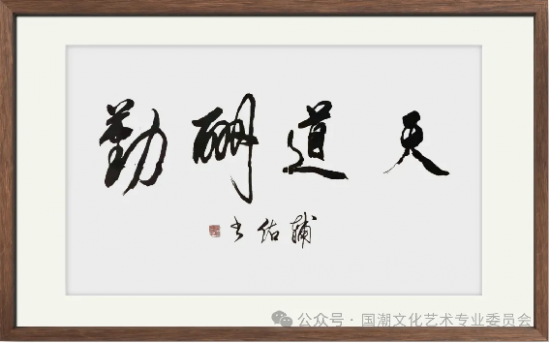 天道酬勤
輔佑书
公众号 · 国潮文化艺术专业委员会